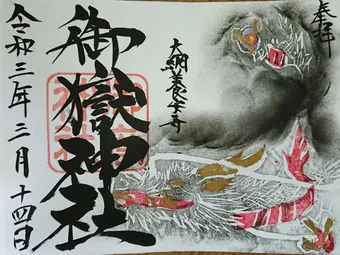 奉拝
大納養安寺
御嶽神社
令和三年三月十四日